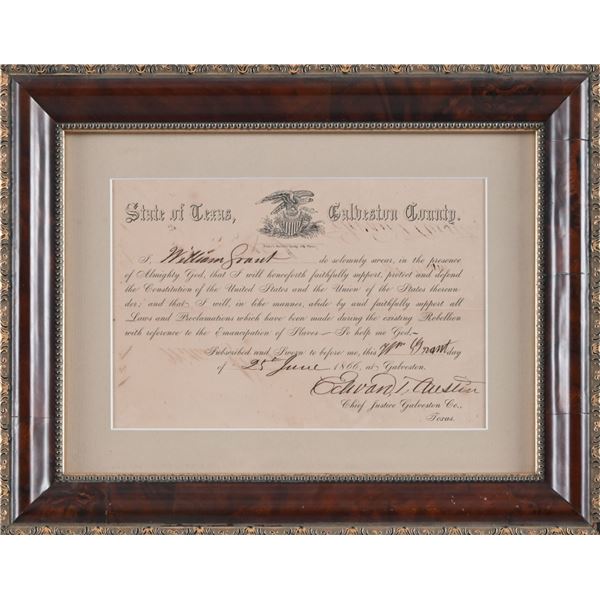 State of Texas, Galveston County.
I, William Grant do solemnly swear, in the presence
of Almighty God, that I will henceforth faithfully support, protect and defend
the Constitution of the United States and the Union of the States thereun-
der; and that I will, in like manner, abide by and faithfully support all
Laws and Proclamations which have been made during the existing Rebellion
with reference to the Emancipation of Slaves—So help me God.—
Subscribed and Sworn to before me, this Wm Grant day
of 25th June 1866, at Galveston.
Edward T. Austin
Chief Justice Galveston Co.,
Texas.